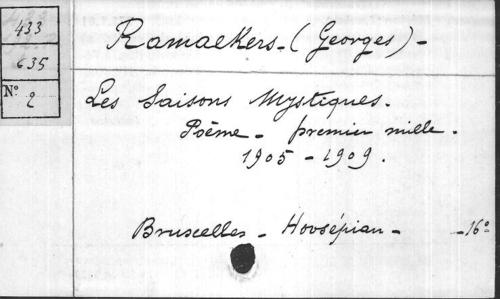 433
635
N° 2
Ramaekers - (Georges) -
Les Saisons Mystiques.
Poème - premier mille.
1905 - 1909.
Bruxelles - Hovsépian - - 16°